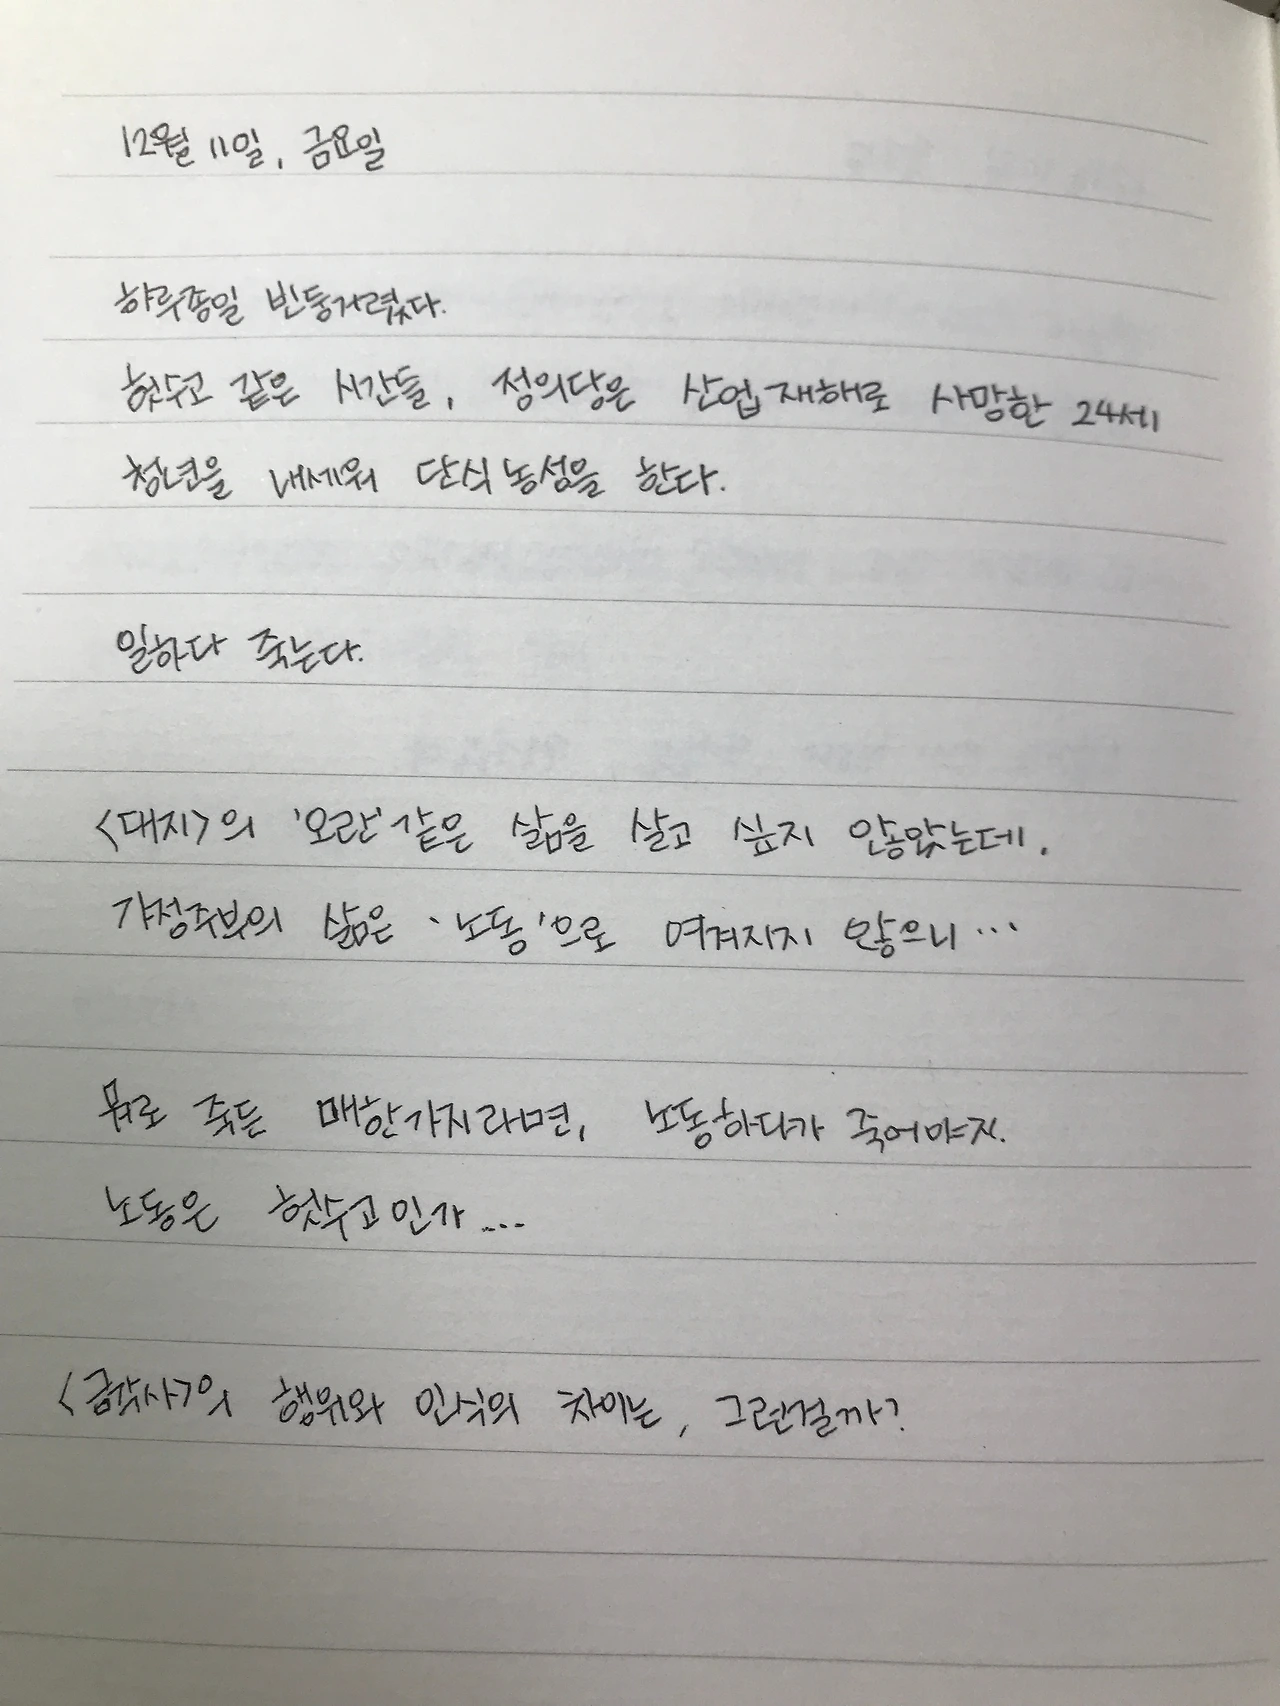 12월 11일, 금요일
하루종일 빈둥거렸다.
헛수고 같은 시간들, 정의당은 산업재해로 사망한 24세
청년을 내세워 단식농성을 한다.
일하다 죽는다.
<대지>의 '오란'같은 삶을 살고 싶지 않았는데,
가정주부의 삶은 '노동'으로 여겨지지 않으니…
뭐로 죽든 매한가지라면, 노동하다가 죽어야지.
노동은 헛수고인가...
<금각사>의 행위와 인식의 차이는, 그런걸까?